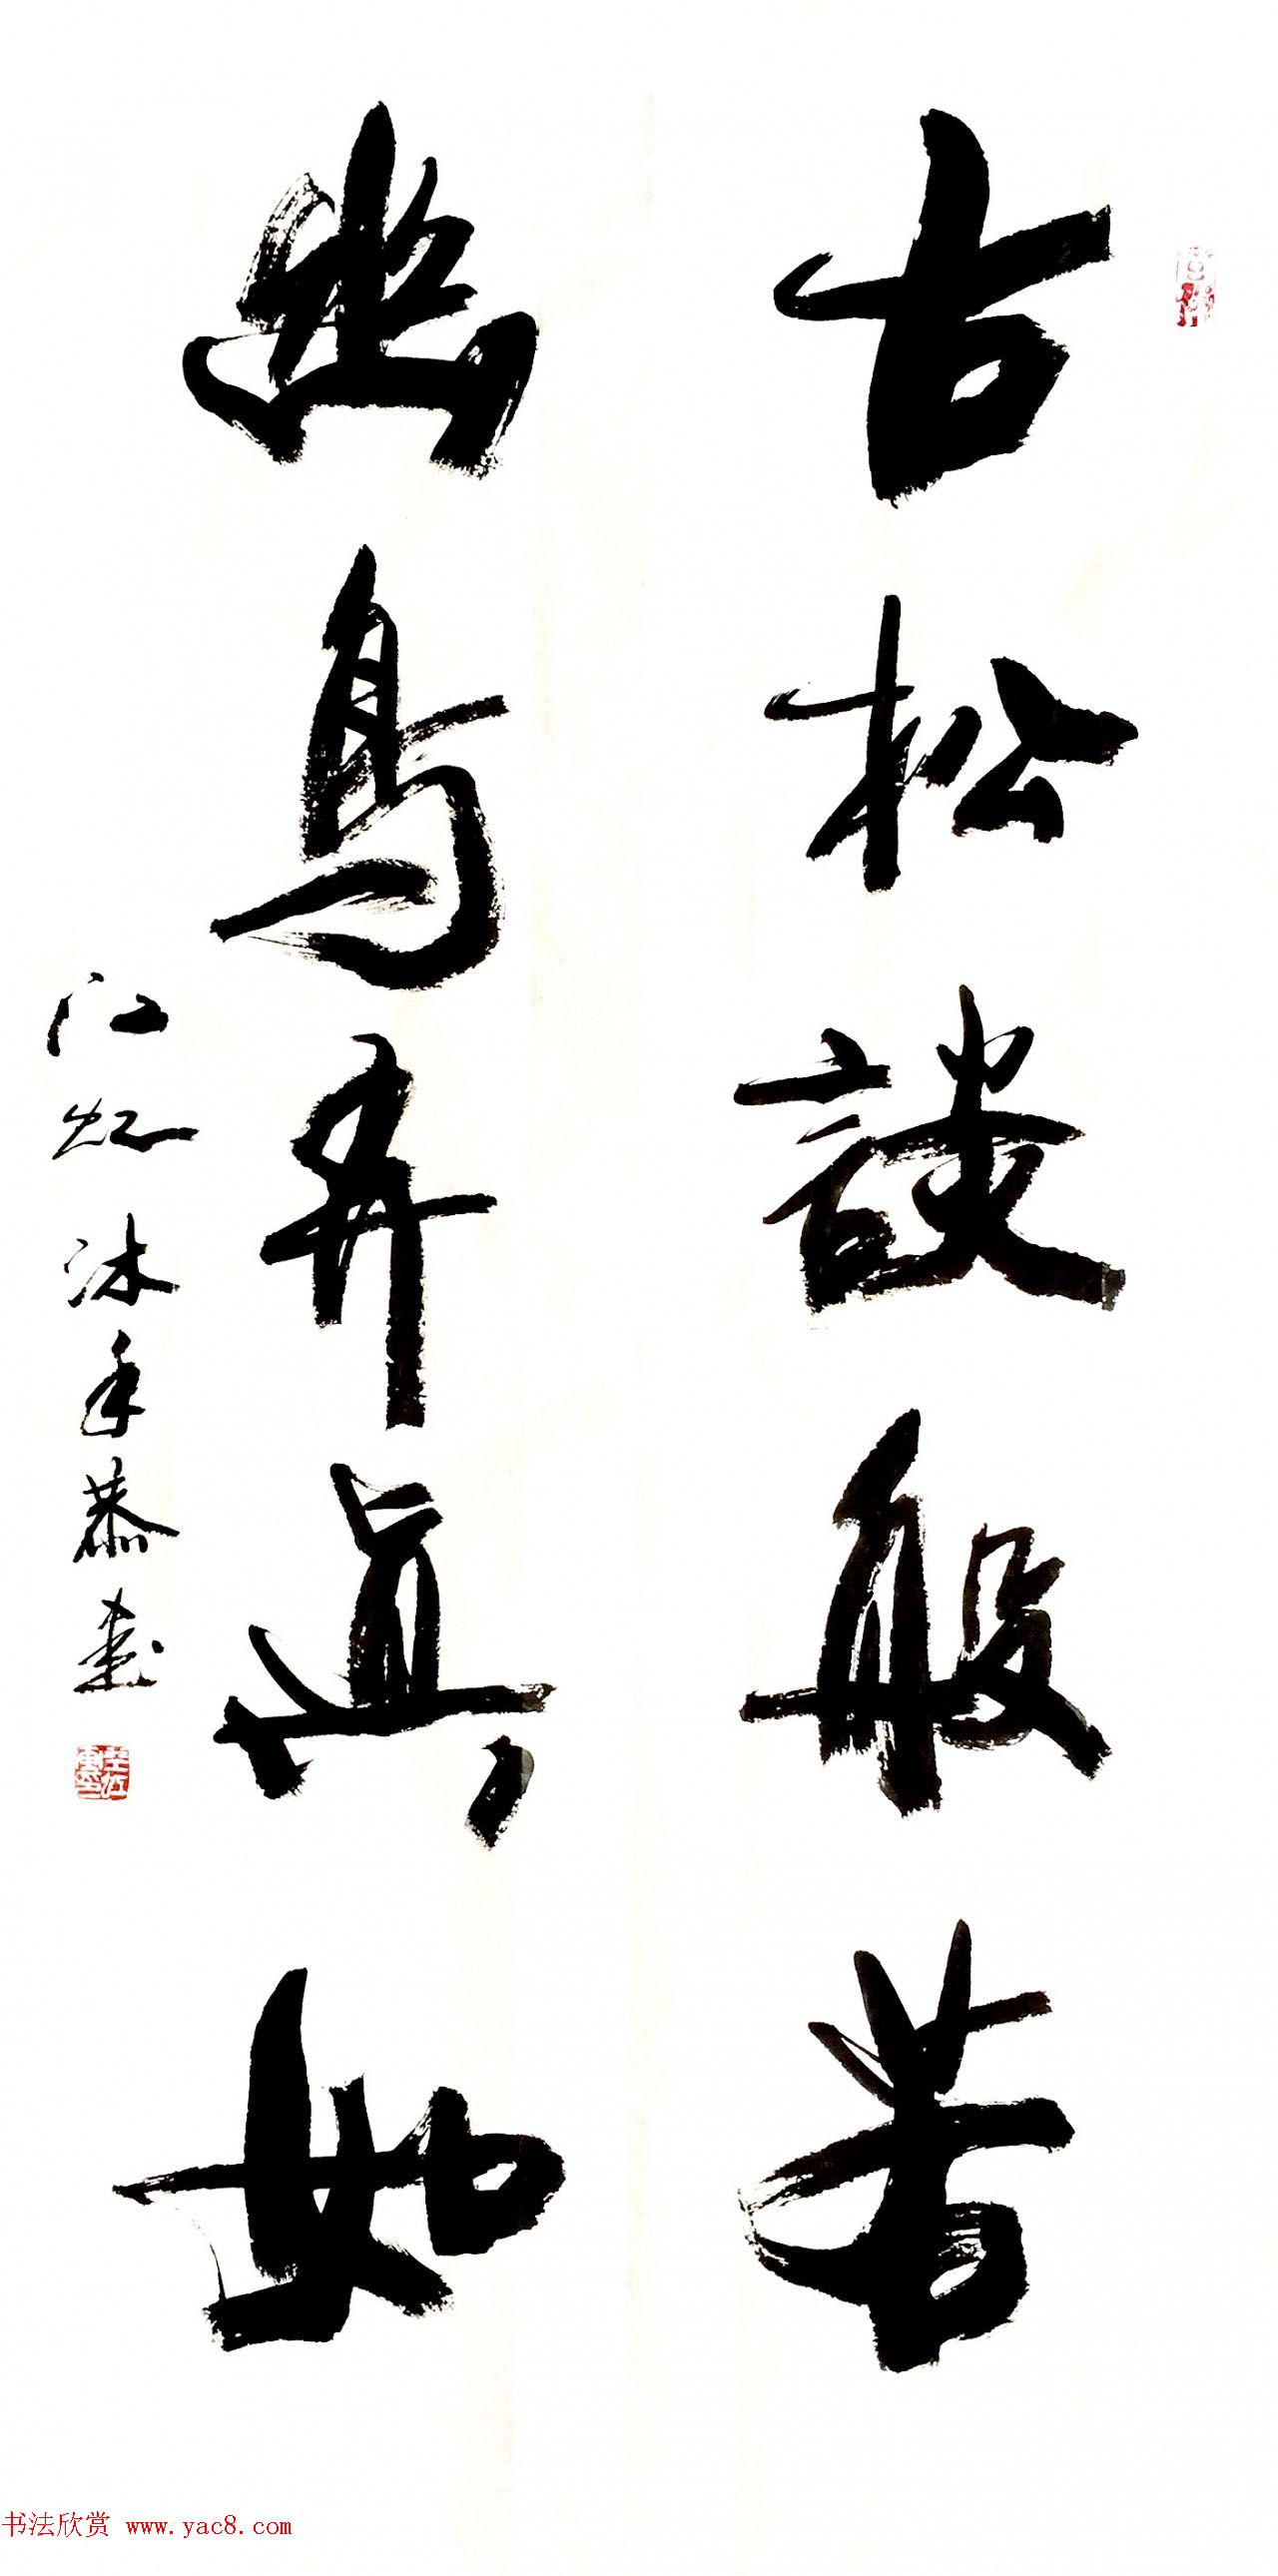 古松談般若
幽鳥弄真如
江虹沐手恭書
书法欣赏 www.yac8.com